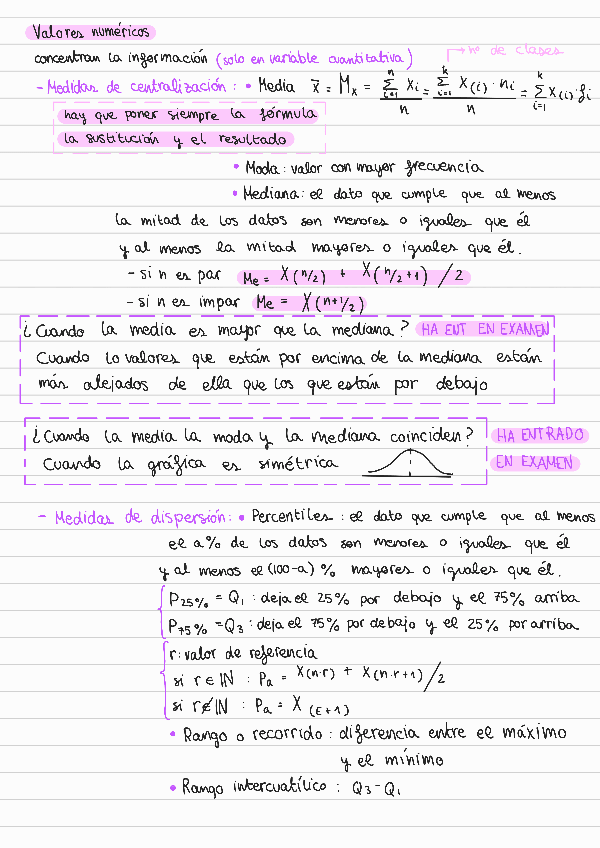 Valores numéricos
concentran la información (solo en variable cuantitativa)
→ nº de clases
- Medidas de centralización: • Media x̄ = Mx = Σ(i=1 → n) xi / n = Σ(i=1 → k) x(i) · ni / n = Σ(i=1 → k) x(i) · fi
hay que poner siempre la fórmula
la sustitución y el resultado
• Moda: valor con mayor frecuencia
• Mediana: el dato que cumple que al menos
la mitad de los datos son menores o iguales que él
y al menos la mitad mayores o iguales que él.
- si n es par Me = X(n/2) + X(n/2+1) / 2
- si n es impar Me = X(n+1/2)
¿Cuando la media es mayor que la mediana? HA ENT EN EXAMEN
Cuando lo valores que están por encima de la mediana están
más alejados de ella que los que están por debajo
¿Cuando la media la moda y la mediana coinciden? HA ENTRADO
Cuando la gráfica es simétrica EN EXAMEN
- Medidas de dispersión: • Percentiles: el dato que cumple que al menos
el a% de los datos son menores o iguales que él
y al menos el (100-a) % mayores o iguales que él.
P25% = Q1: deja el 25% por debajo y el 75% arriba
P75% = Q3: deja el 75% por debajo y el 25% por arriba
r: valor de referencia
si r∈ℕ : Pa = X(n·r) + X(n·r+1)/2
si r∉ℕ : Pa = X(E+1)
• Rango o recorrido: diferencia entre el máximo
y el mínimo
• Rango intercuatílico: Q3-Q1